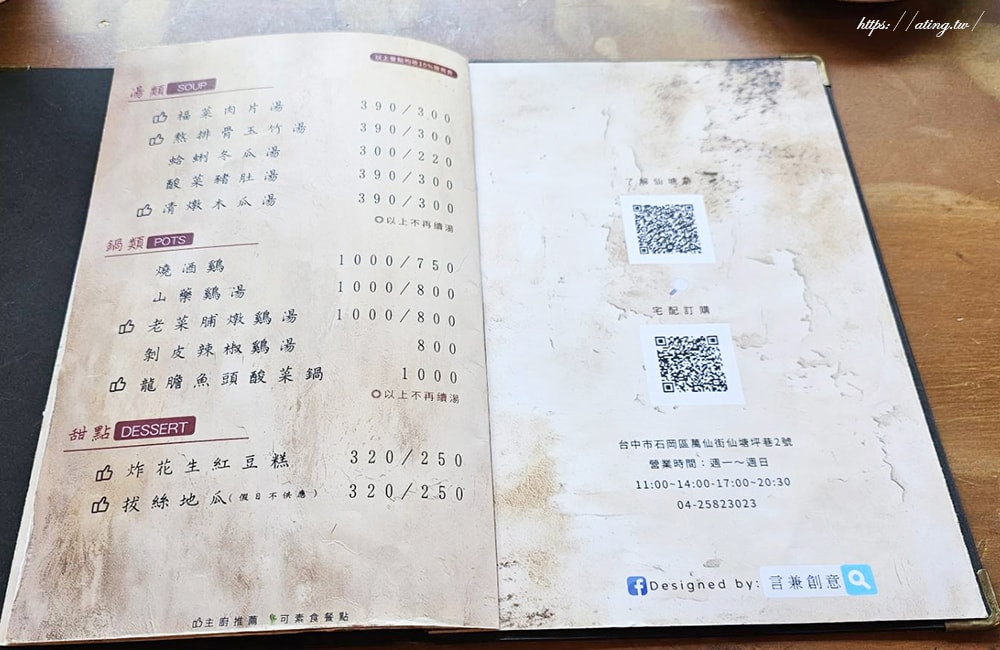 https://ating.tw/
以上餐點均收10%服務費
湯類 SOUP
福菜肉片湯 390/300
熬排骨玉竹湯 390/300
蛤蜊冬瓜湯 300/220
酸菜豬肚湯 390/300
清燉木瓜湯 390/300
◎以上不再續湯
鍋類 POTS
燒酒雞 1000/750
山藥雞湯 1000/800
老菜脯燉雞湯 1000/800
剝皮辣椒雞湯 800
龍膽魚頭酸菜鍋 1000
◎以上不再續湯
甜點 DESSERT
炸花生紅豆糕 320/250
拔絲地瓜(假日不供應) 320/250
主廚推薦 可素食餐點
了解仙塘
宅配訂購
台中市石岡區萬仙街仙塘坪巷2號
營業時間：週一～週日
11:00~14:00-17:00~20:30
04-25823023
Designed by: 言兼創意